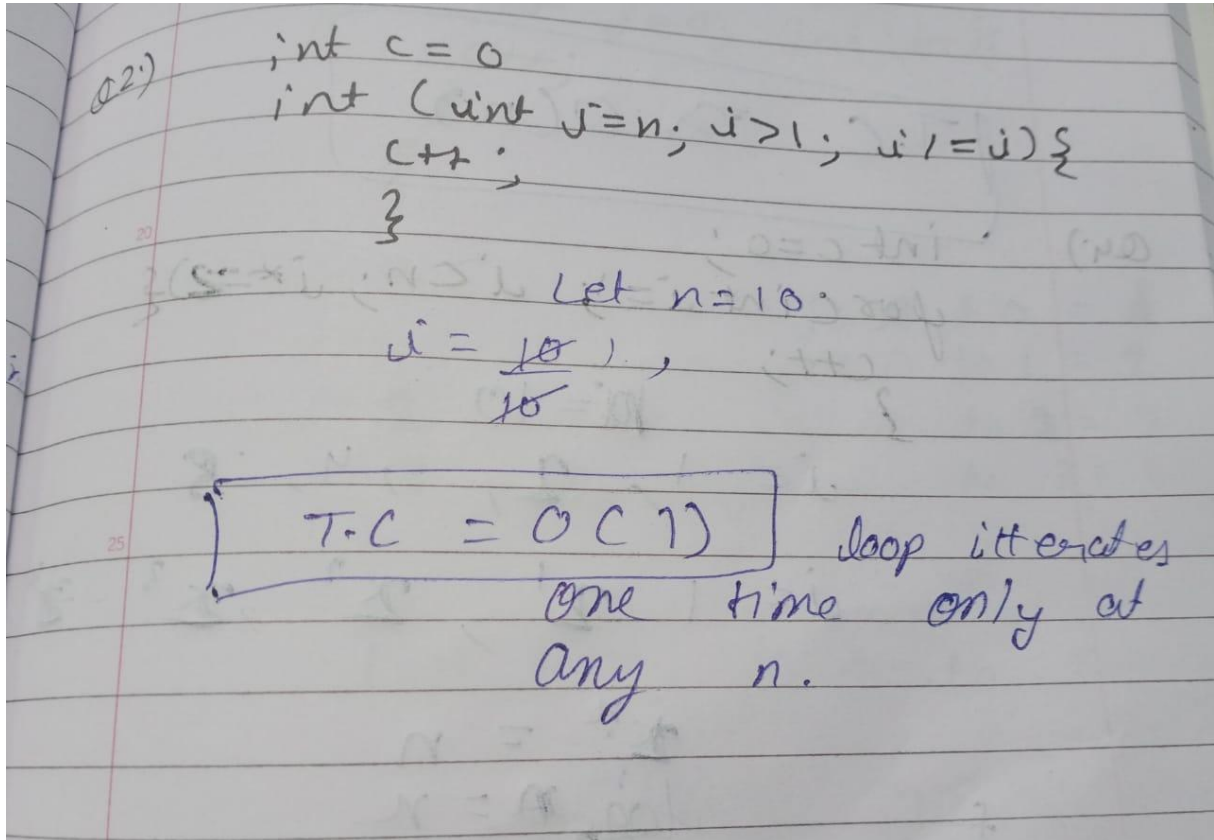 Q2.)
int c = 0
int (int i=n; i>1; i/=i){
c++;
}
20
Let n=10.
i = 10 1,
10
T.C = O(1)
25
loop itterates
one time only at
any n.